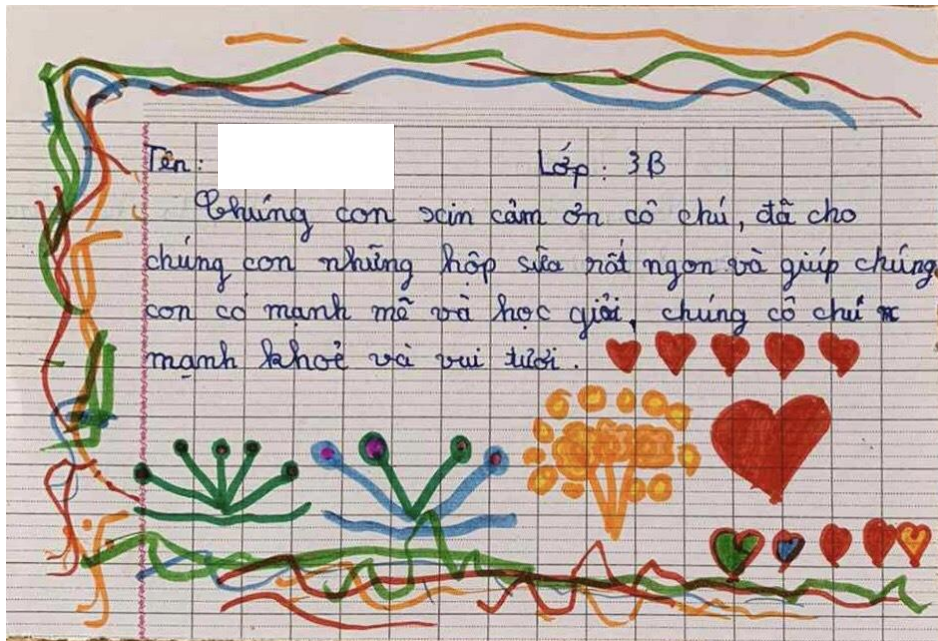 Tên: Lớp: 3B
Chúng con xin cảm ơn cô chú, đã cho
chúng con những hộp sữa rất ngon và giúp chúng
con có mạnh mẽ và học giỏi, chúng cô chú
mạnh khoẻ và vui tươi.